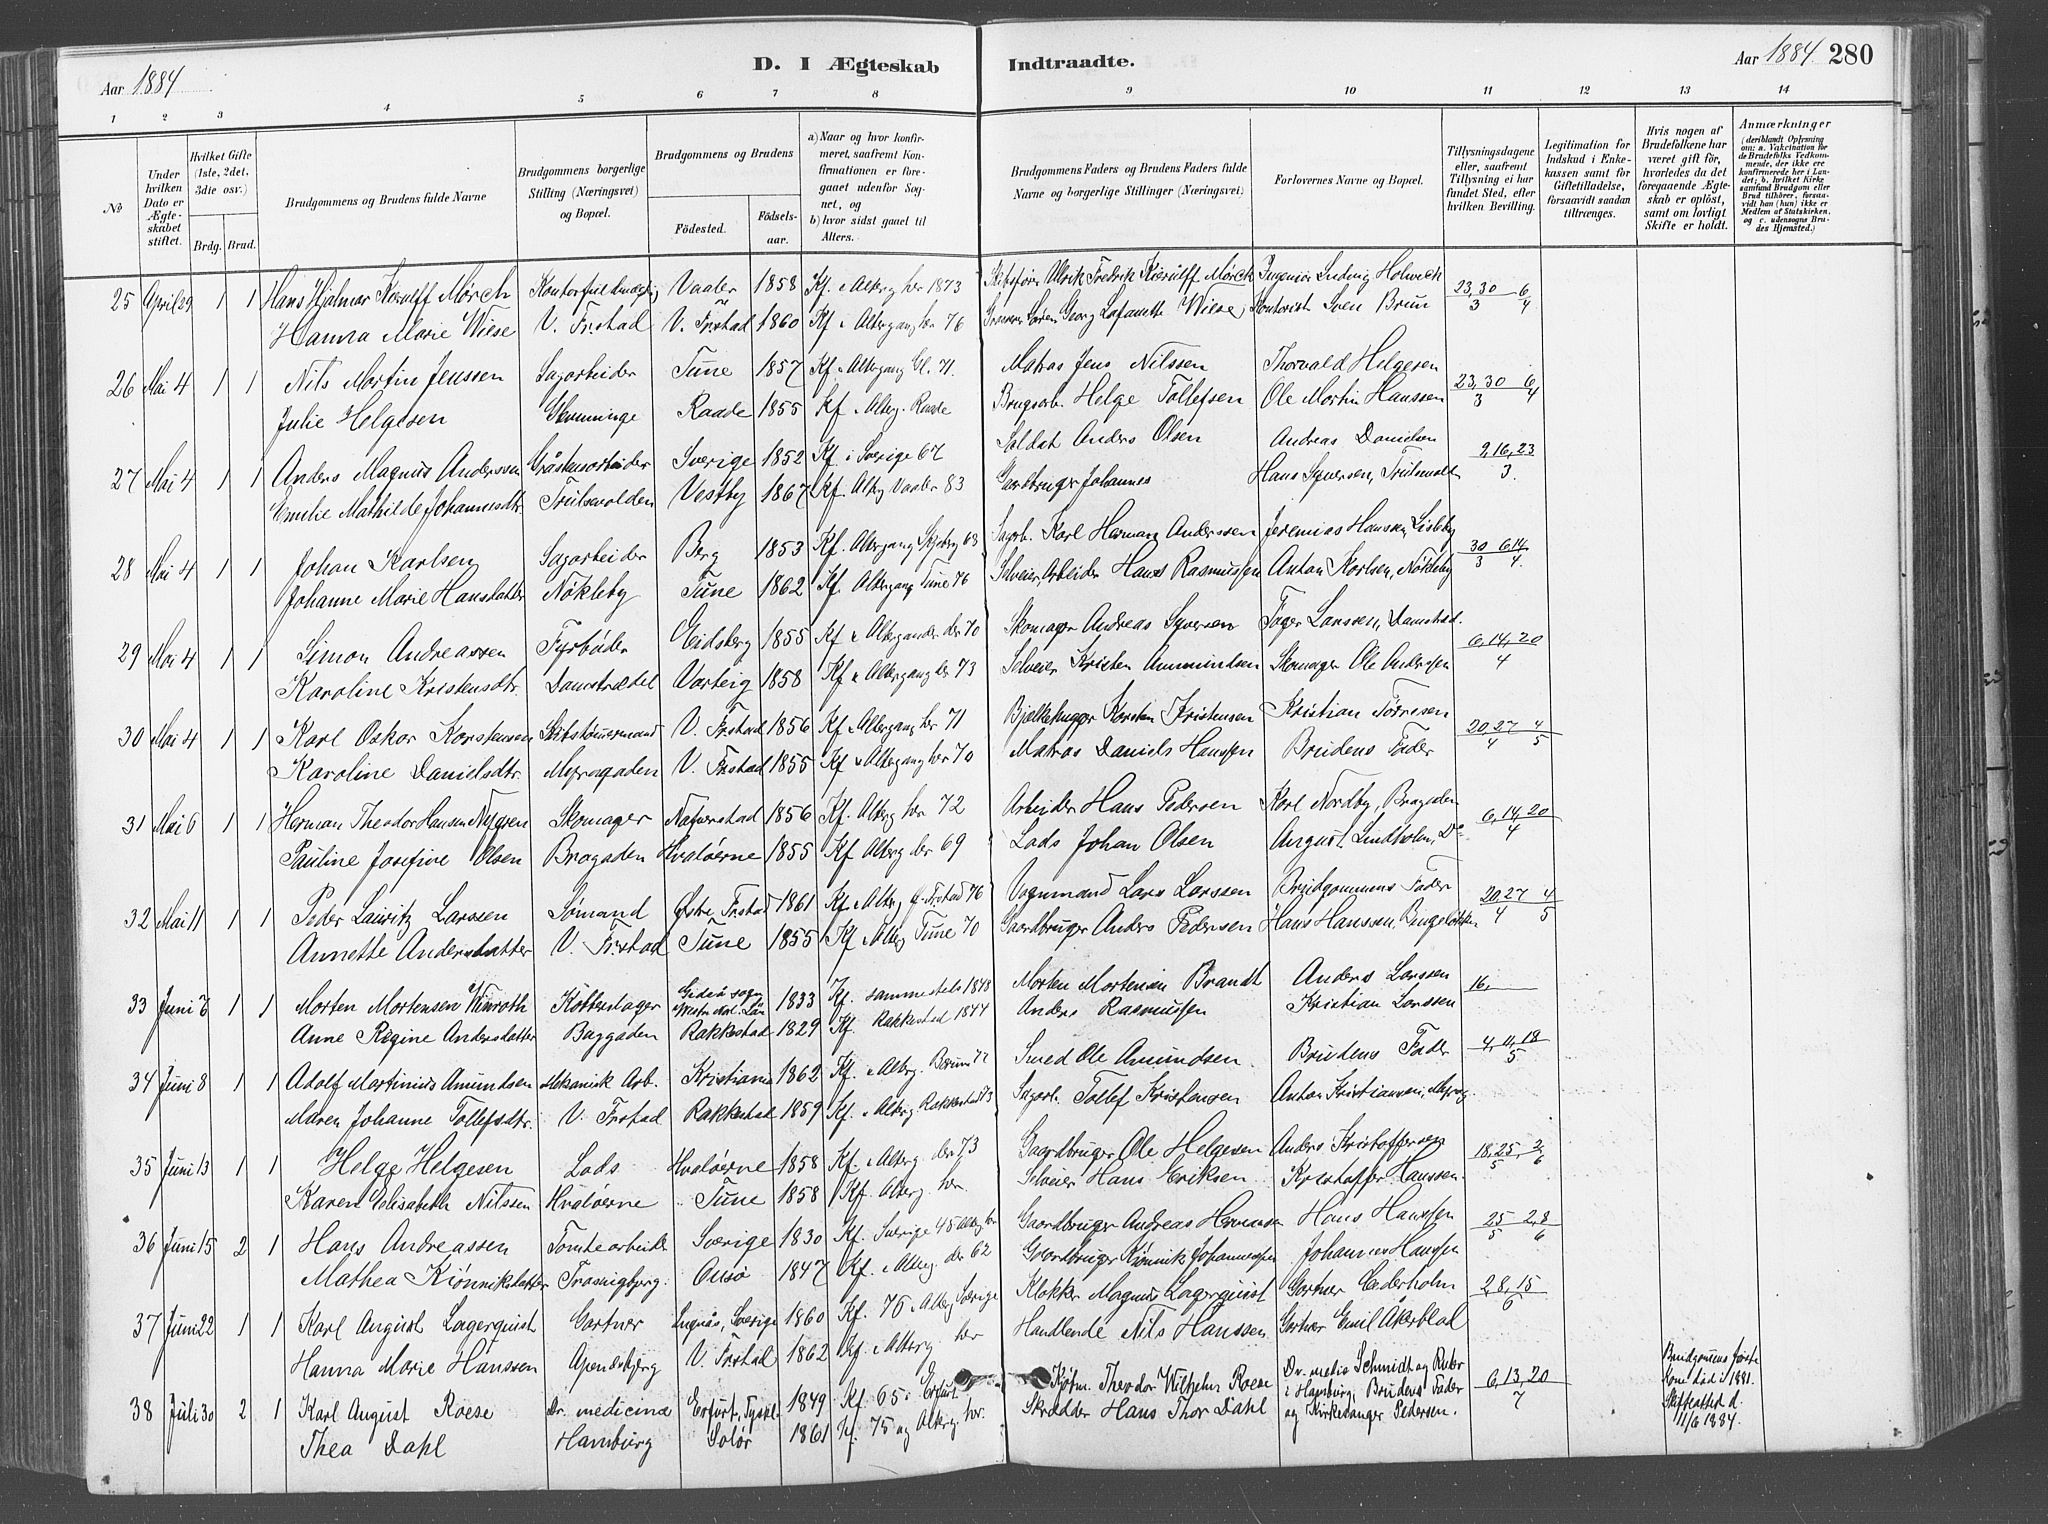 Aar 1884
D. I Ægteskab Indtraadte.
Aar 1884 280
1 2 3 4 5 6 7 8 9 10 11 12 13 14
No
Under hvilken Dato er Ægteskabet stiftet.
Hvilket Gifte (1ste, 2det, 3die osv.)
Brdg. Brud.
Brudgommens og Brudens fulde Navne
Brudgommens borgerlige Stilling (Næringsvei) og Bopæl.
Brudgommens og Brudens
Fødested. Fødselsaar.
a) Naar og hvor konfirmeret, saafremt Konfirmationen er foregaaet udenfor Sognet, og
b) hvor sidst gaaet til Alters.
Brudgommens Faders og Brudens Faders fulde Navne og borgerlige Stillinger (Næringsvei)
Forlovernes Navne og Bopæl.
Tillysningsdagene eller, saafremt Tillysning ei har fundet Sted, efter hvilken Bevilling.
Legitimation for Indskud i Enkekassen samt for Giftetilladelse, forsaavidt saadan tiltrænges.
Hvis nogen af Brudefolkene har været gift før, hvorledes da det foregaaende Ægteskab er opløst, samt om lovligt Skifte er holdt.
Anmærkninger
(deriblandt Oplysning om: a. Vakcination for de Brudefolks Vedkommende, der ikke ere konfirmerede her i Landet; b. hvilket Kirkesamfund Brudgom eller Brud tilhører, forsaavidt han (hun) ikke er Medlem af Statskirken, og c. udensogns Brudes Hjemsted.)
25 April 29 1 1 Hans Hjalmar Kierulff Mörch Vaaler 1858 Kf. Alterg her 1873 Skibsfører Ulrik Fredrik Kierulff Mörch Ingeniør Ludvig Holwech 23, 30/3 6/4
Hanna Marie Wiese V. Frstad V. Frstad 1860 Kf. Altergang her 76 Søren Georg Lafanette Wiese, Kontorist Sven Brun
26 Mai 4 1 1 Nils Martin Jenssen Sagarbeider Tune 1857 Kf. Altergang Gl. 71. Matros Jens Nilssen Thorvald Helgesen 23, 30/3 6/4
Julie Helgesen Glemminge Raade 1855 Kf. Alterg. Raade Brugsarb. Helge Tollefsen Ole Martin Hanssen
27 Mai 4 1 1 Anders Magnus Anderssen Gråstensarbeider Sverige 1852 Kf. i Sverige 67 Soldat Anders Olsen Andreas Danielsen 2, 16, 23/3.
Emelie Mathilde Johannesdtr. Trulsvolden Vestby 1867 Kf. Altg Vaaler 83 Gaardbruger Johannes Hans Syversen,
28 Mai 4 1 1 Johan Karlsen Sagarbeider Berg 1853 Kf. Altergang Skjeberg 68 Sagarb. Karl Herman Anderssen Jeremias Hanssen, Lisleby 30/3 6, 14/4.
Johanne Marie Hansdatter Nökleby Tune 1862 Kf. Altergang Tune 76 Selveier, Arbeider Hans Rasmussen Anton Karlsen, Nökleby
29 Mai 4 1 1 Simon Andreassen Fyrböder Eidsberg 1855 Kf. der 70 Skomager Andreas Syversen Larssen, Damstræd. 6, 14, 20/4
Karoline Kristensdtr. Damstrædet Varteig 1858 Kf. Altergang der 73 Selveier Kristen Ammundsen Skomager Ole Anderssen
30 Mai 4 1 1 Karl Oskar Karstensen Skibstömmermand V. Frstad 1856 Kf. Altergang her 71 Bjelkehugger Karsten Kristensen Kristian Törresen 20, 27/4 4/5
Karoline Danielsdtr. Myragaden V. Frstad 1855 Kf. Altergang her 70 Matros Daniels Hanssen Brudens Fader
31 Mai 6 1 1 Herman Theodor Hansen Nygren Skomager Naverstad 1856 Kf. Alterg her 72 Arbeider Hans Pedersen Karl Nordby, Bragaden 6, 14, 20/4
Pauline Josefine Olsen Bragaden Hvalöerne 1855 Kf. Alterg der 69 Lods Johan Olsen August Lindholm, Do
32 Mai 11 1 1 Peder Lauritz Larssen Sømand Østre Frstad 1861 Kf. Alterg Ø. Frstad 76 Vognmand Lars Larssen Brudgommens Fader 20, 27/4 4/5
Annette Andersdatter V. Frstad Tune 1855 Kf. Alterg Tune 70 Gaardbruger Anders Pedersen Hans Hanssen,
33 Juni 6 1 1 Morten Mortensen Winroth 1833 Kf. sammesteds 1848 Morten Mortensen Brandt Anders Larssen 16,
Anne Regine Andersdatter Baggaden Rakkestad 1829 Kf. Rakkestad 1844 Anders Rasmussen Kristian Larssen
34 Juni 8 1 1 Adolf Martinius Amundsen Mekanisk Arb. Kristiania 1862 Kf. Alterg. Bærum 77 Smed Ole Amundsen. Brudens Fader 4, 11, 18/5
Maren Johanne Tollefsdtr. V. Frstad Rakkestad 1859 Kf. Alterg Rakkestad 73 Sagarb. Tollef Kristensen Anton Kristiansen,
35 Juni 13 1 1 Helge Helgesen Lods Hvalöerne 1858 Kf. Alterg. der 73 Gaardbruger Ole Helgesen Anders Kristoffersen 18, 25/5 2/6
Karen Elisabeth Nilssen Hvalöerne Tune 1858 Kf. Alterg. her. Selveier Hans Eriksen Kristoffer Hanssen.
36 Juni 15 2 1 Hans Andreassen Tomtearbeider Sverige 1830 Kf. Sverige 45 Alterg her Gaardbruger Andreas Hermansen Hans Hanssen 25/5 2, 8/6
Mathea Kiönniksdatter Onsö 1847 Kf. Alterg. der 62 Gaardbruger Kiönnik Johannessen Johannes Hanssen
37 Juni 22 1 1 Karl August Lagerquist Gartner Sverige 1860 Kf. 76 Alterg Sverige Klokker Magnus Lagerquist Gartner Cederholm 2, 8, 15/6
Hanna Marie Hanssen Apenesbjerg V. Frstad 1862 Kf. Alterg her Handlende Nils Hanssen Gartner Emil Åkerblad
38 Juli 30 2 1 Karl August Roese Dr. medicinæ Erfurt, Tyskl. 1849 Kf. 65 i Erfurt Kjøbm. Theodor Wilhelm Roese Dr. media Schmidt og i Hamburg, Brudens Fader og Kirkesanger Pedersen. 6, 13, 20/7 Brudgommens første Kone død i 1881. Skifteattest d. 11/6 1884.
Thea Dahl Hamburg Solør 1861 Kf. 75 og Alterg. her. Skrædder Hans Thor Dahl